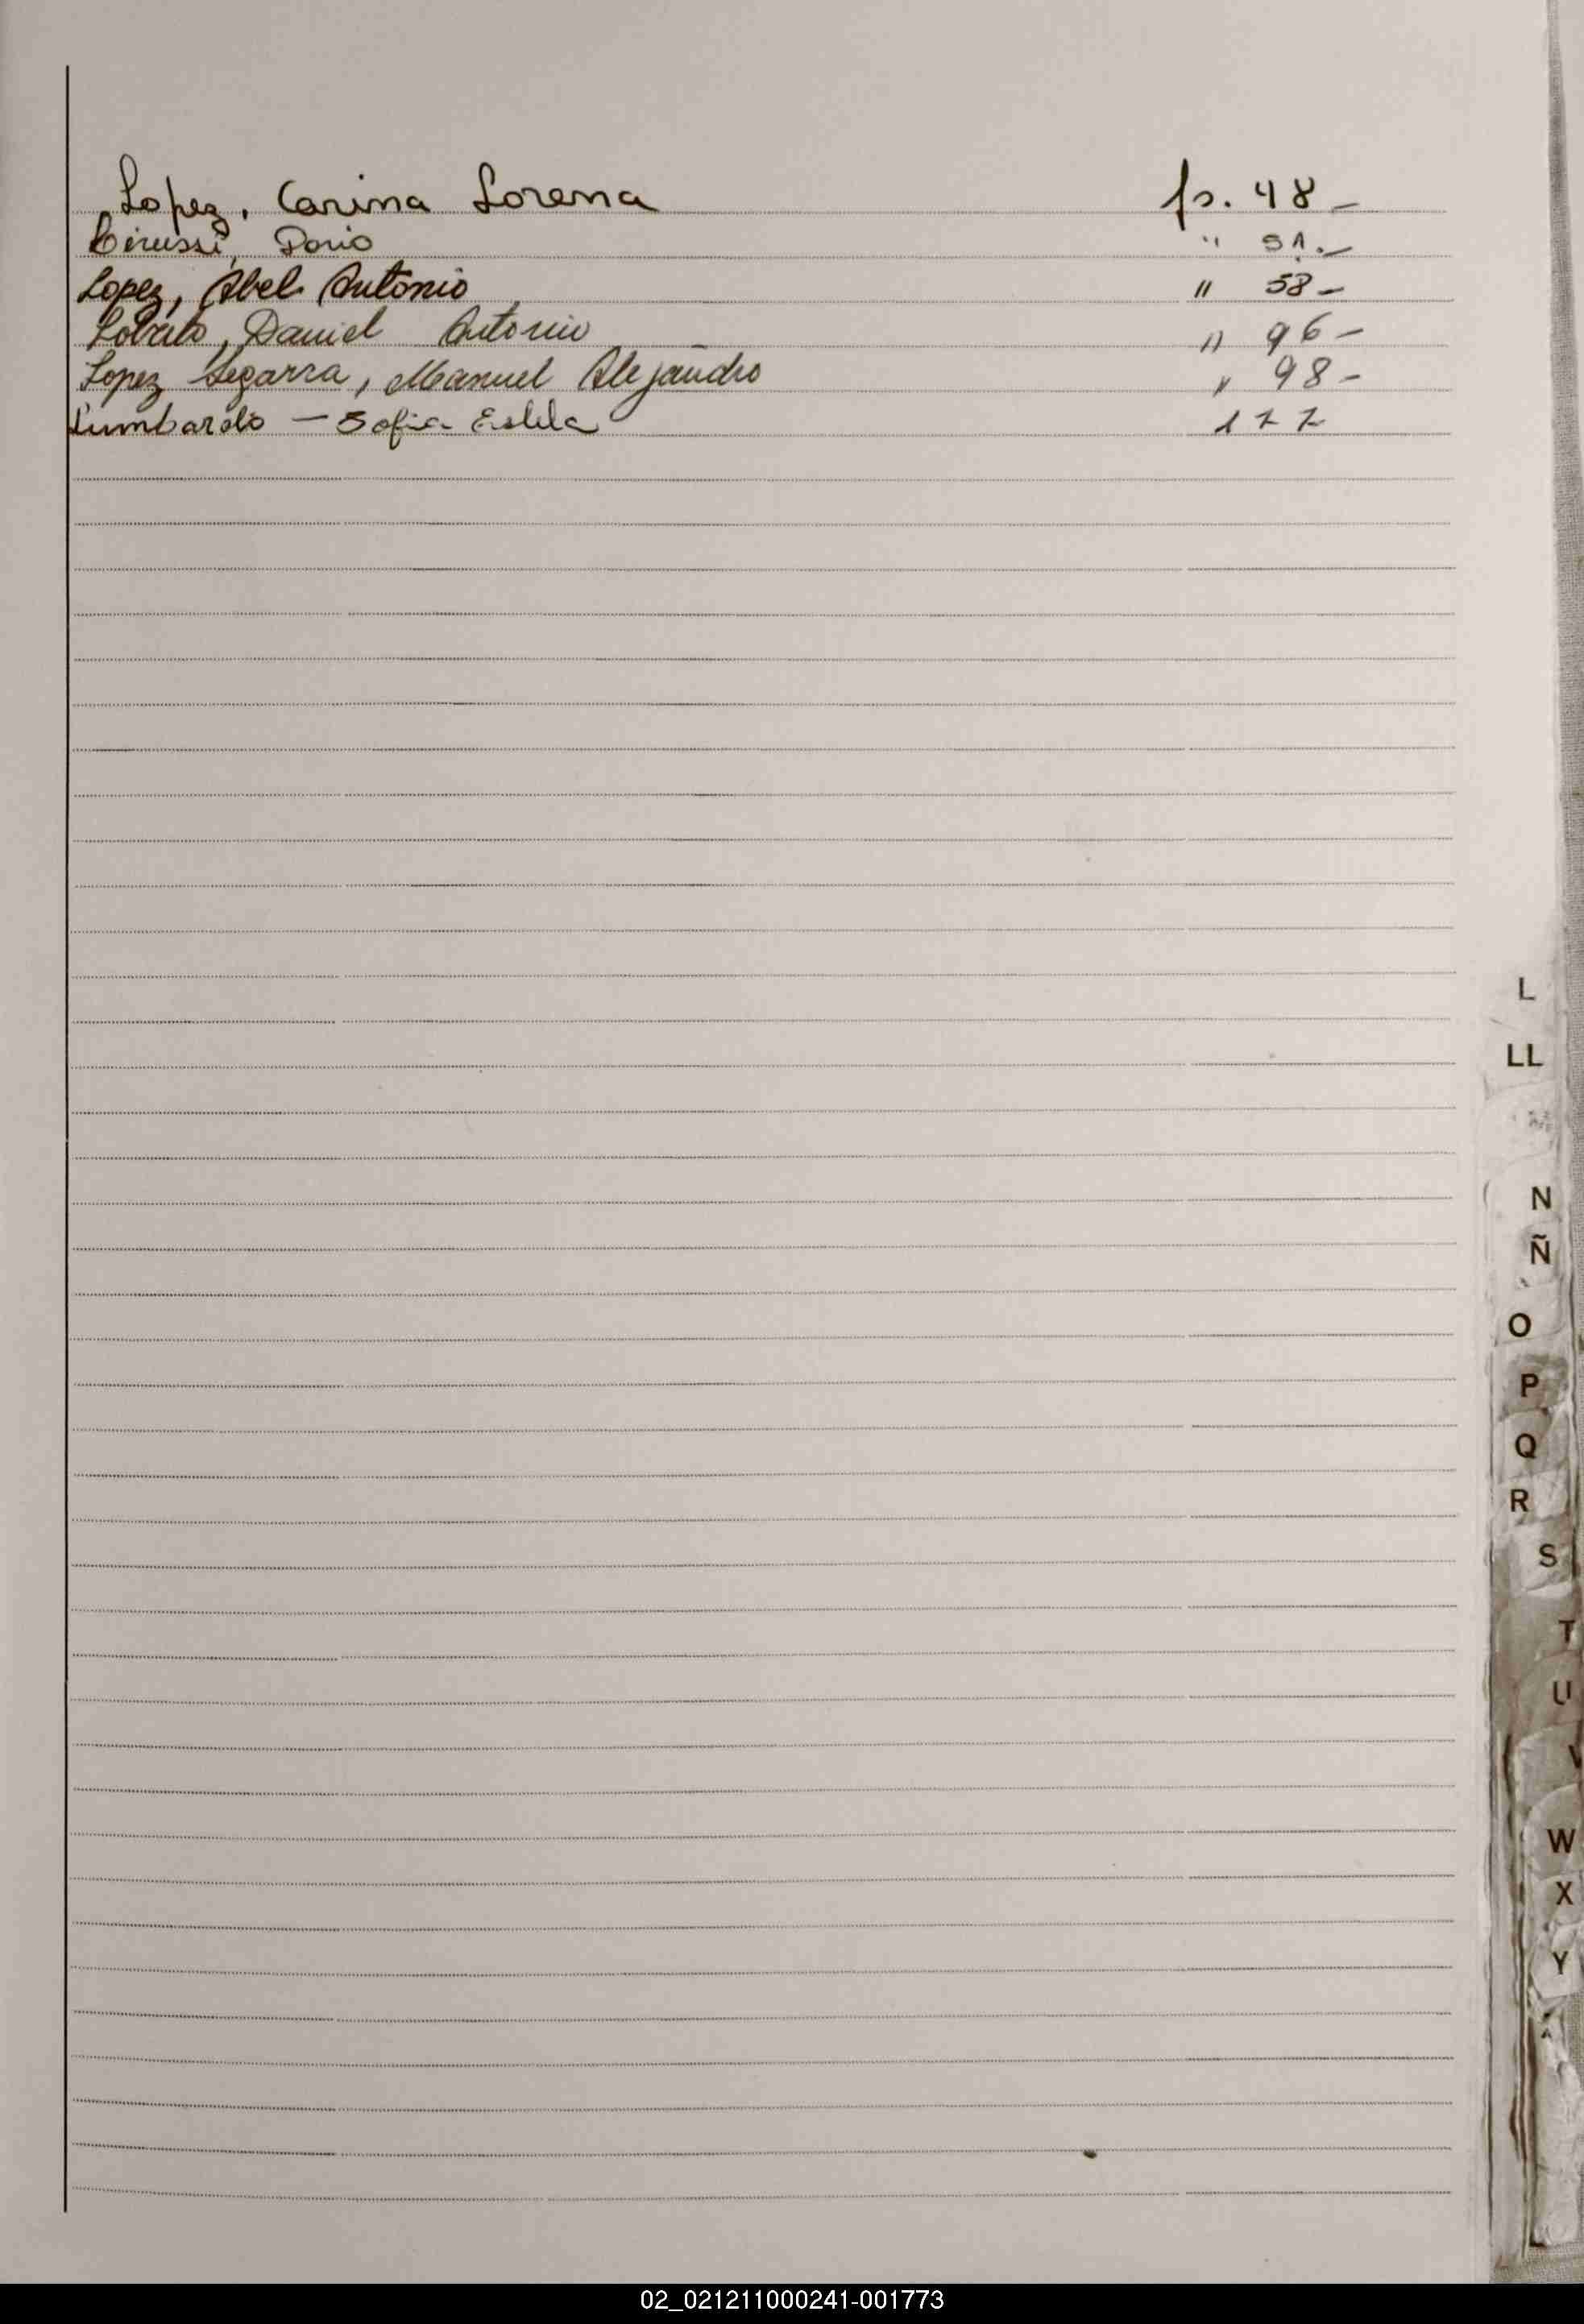 Lopez, Carina Lorena fs. 48-
Dario " 51.-
Lopez, Abel Antonio " 58-
Lobato, Daniel Antonio " 96-
Lopez Segarra, Manuel Alejandro " 98-
Lumbardo - Sofia Estela 177
L
LL
N
Ñ
O
P
Q
R
S
T
U
V
W
X
Y
02_021211000241-001773